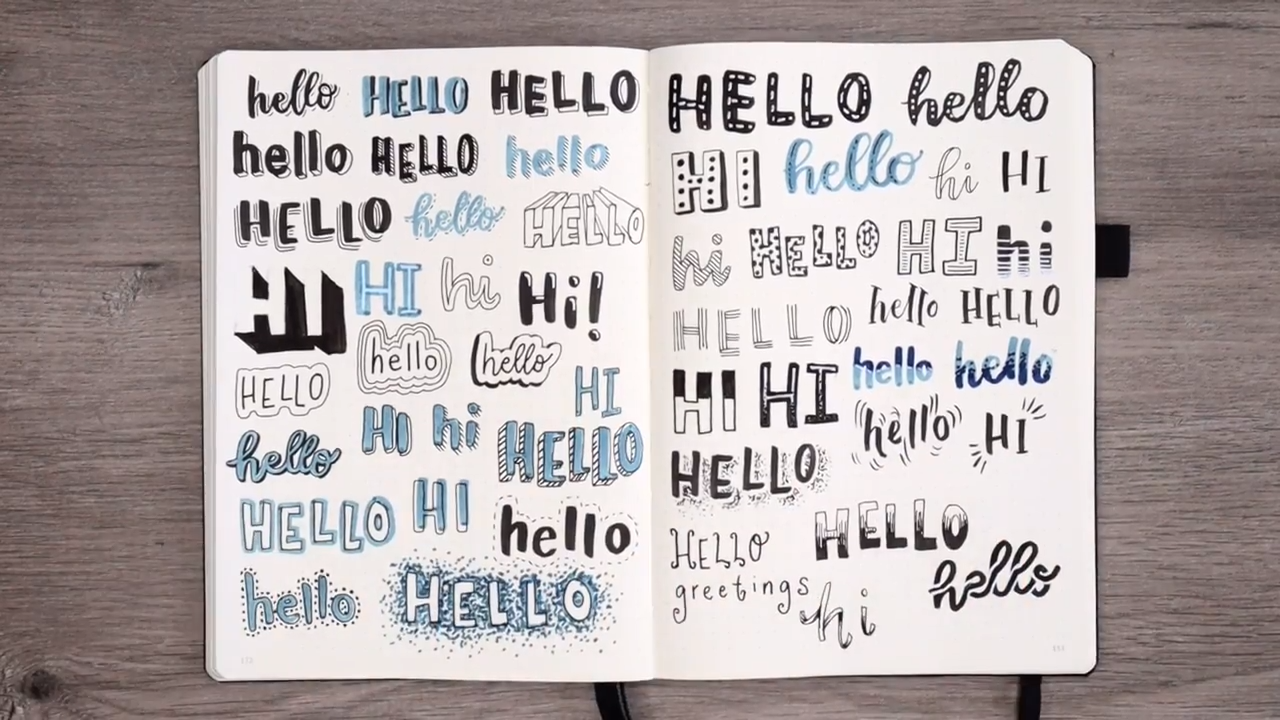 hello HELLO HELLO
hello HELLO hello
HELLO hello HELLO
HI HI hi Hi!
hello hello
HELLO HI
HI hi
hello HELLO
HELLO HI hello
hello HELLO
HELLO hello
HI hello hi HI
hi HELLO HI hi
HELLO hello HELLO
HI HI hello hello
hello HI
HELLO
HELLO HELLO
greetings hi hello